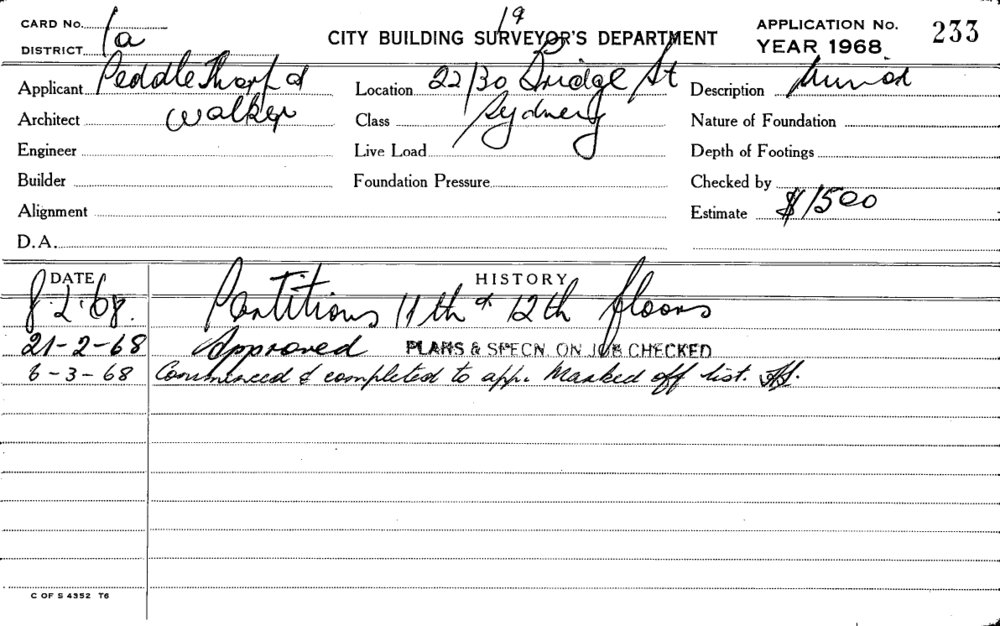 CARD No. 1a
19
CITY BUILDING SURVEYOR'S DEPARTMENT
APPLICATION No. 233
DISTRICT
YEAR 1968
Applicant Peddle Thorp &
Walker
Location 22/30 Bridge St
Sydney
Description Minor
Architect
Class
Nature of Foundation
Engineer
Live Load
Depth of Footings
Builder
Foundation Pressure
Checked by
Alignment
Estimate $1500
D.A.
DATE HISTORY
8.2.68. Partitions 11th & 12th floors
21-2-68 Approved PLANS & SPECN. ON JOB CHECKED
6-3-68 Commenced & completed to app. Marked off list.
C OF S 4352 T6